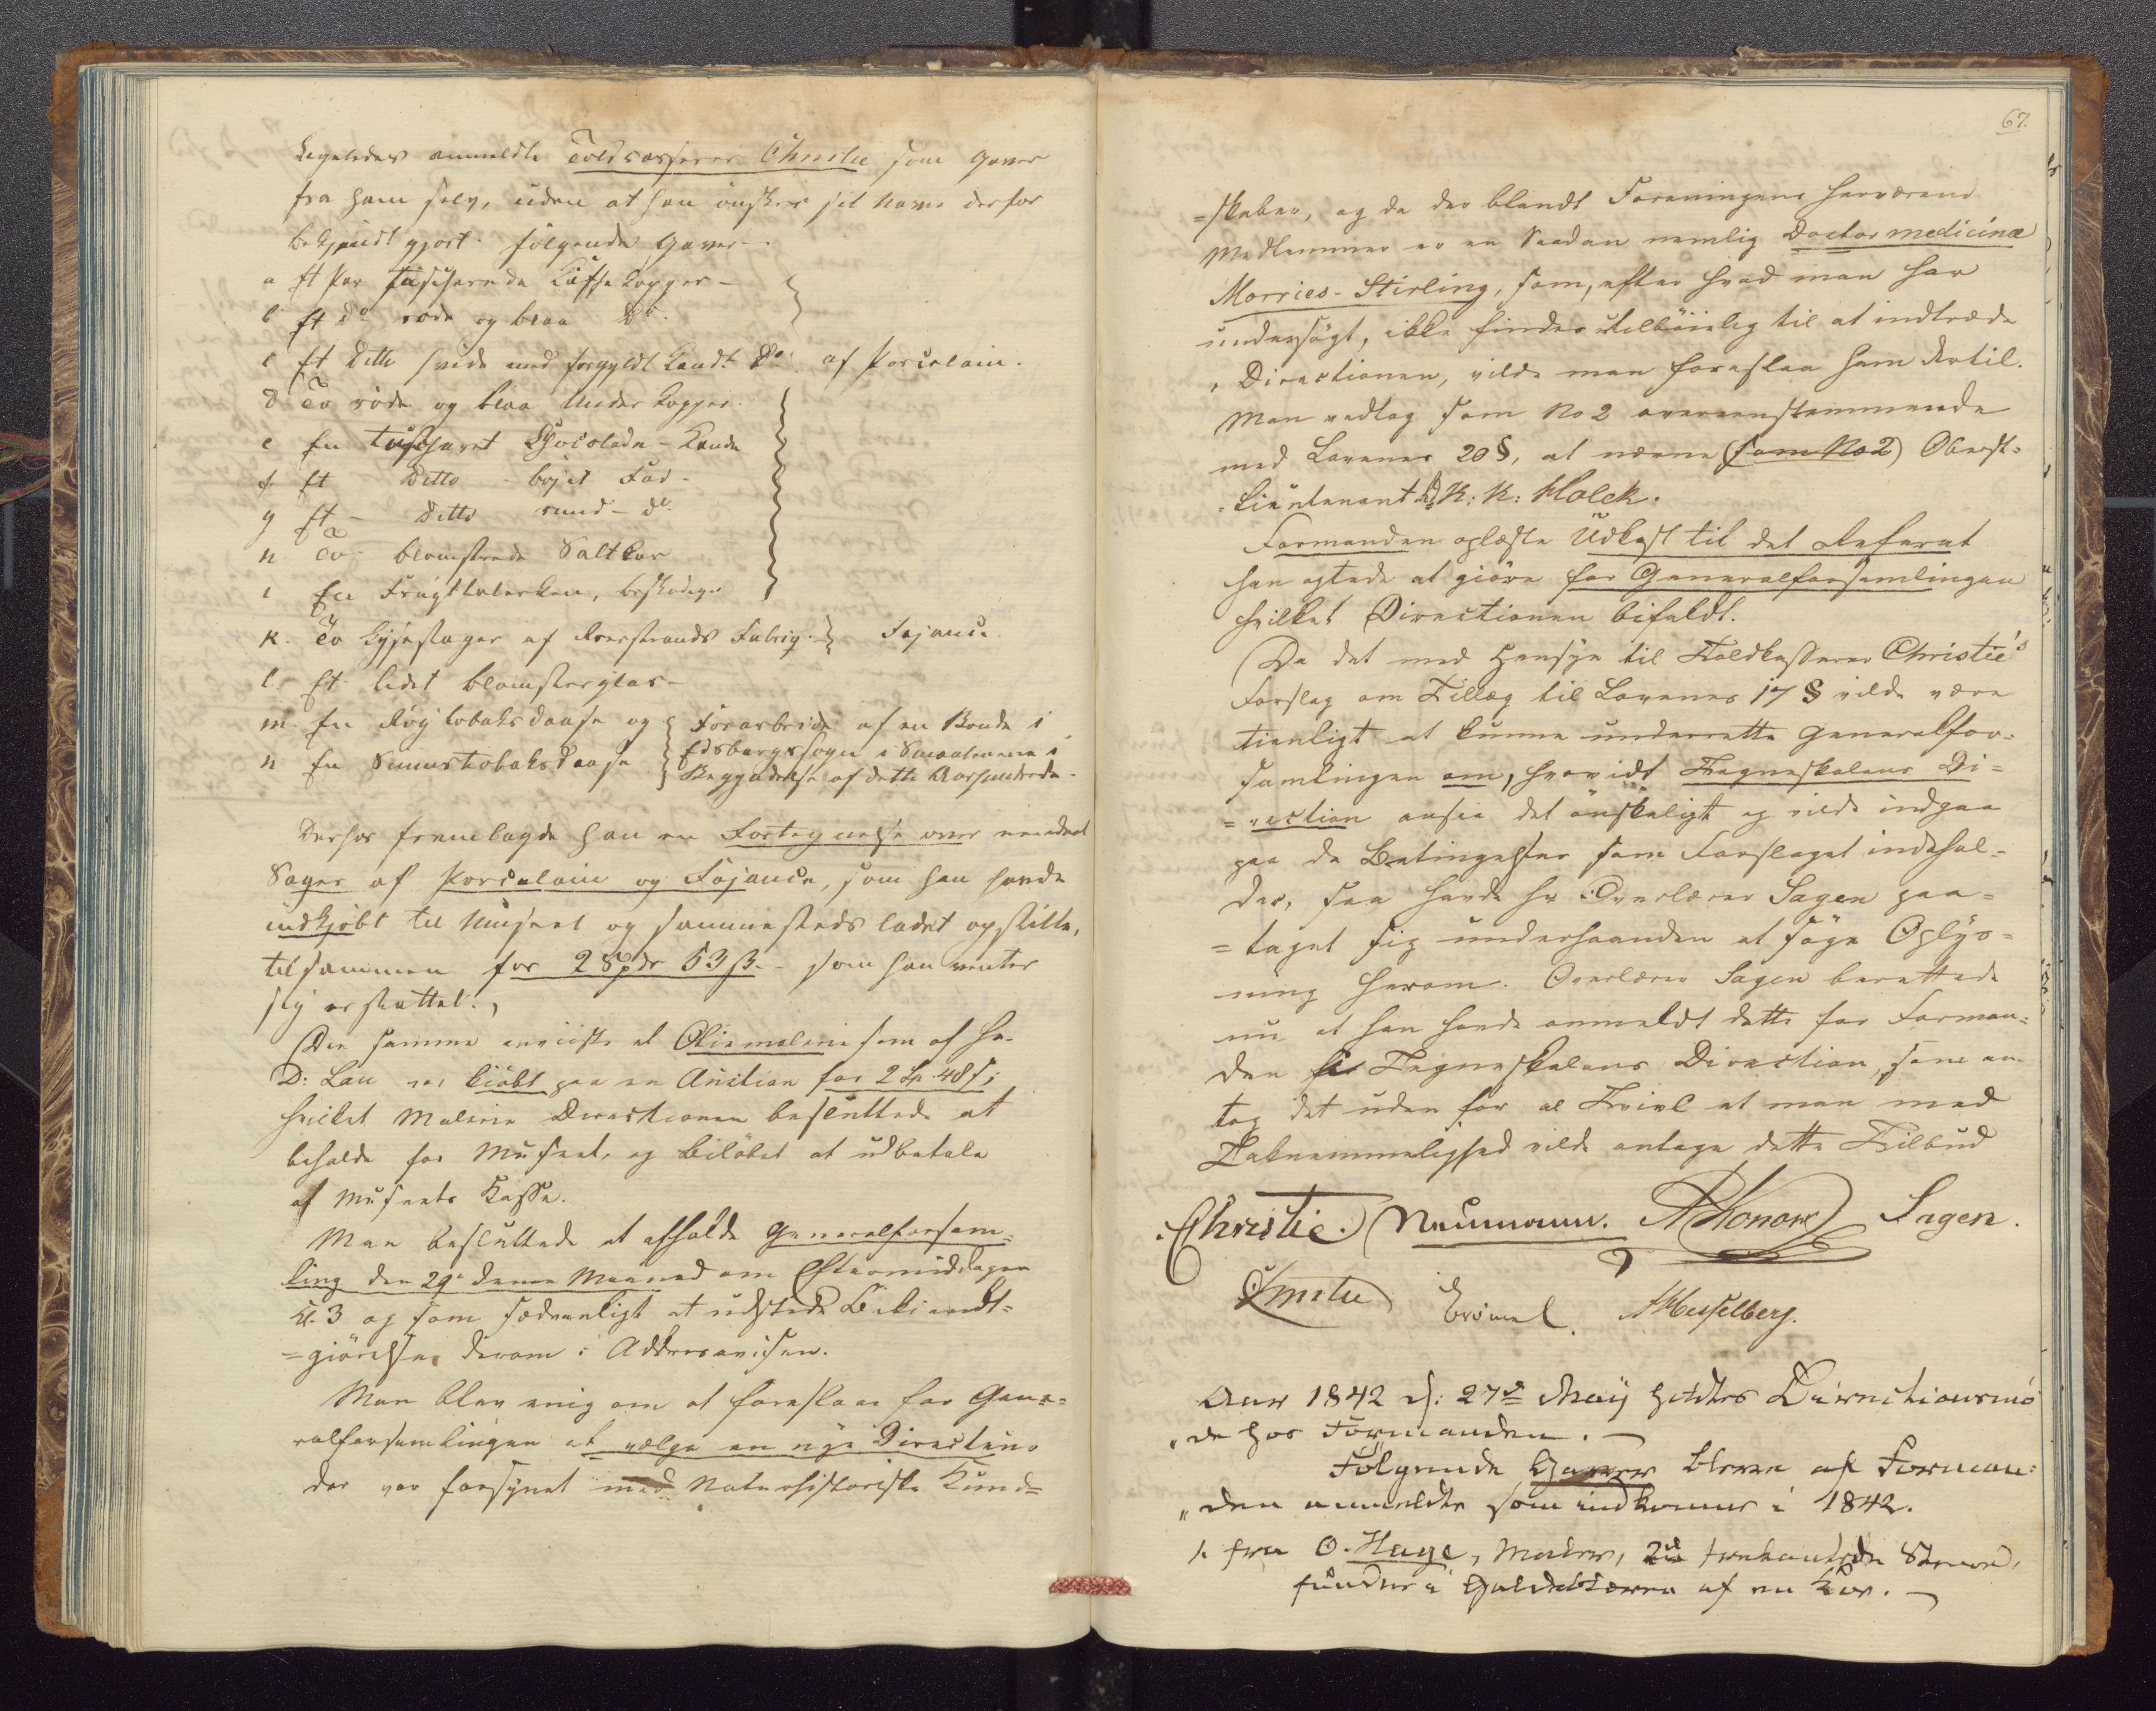 Ligeledes anmeldte Toldcasserer Christie som Gaver
fra ham selv, uden at han ønsker sit Navn derfor
bekjendt gjort følgende Gaver –
a Et Par tuscherede Kaffe Kopper –
b Et Do røde og blaa Do
c Et Ditto hvide med forgyldt Kandt Do af Porcelain.
d To røde og blaa Under Kopper.
e En tuscheret Chocolade-Kande
f Et Ditto – bøjet Fad –
g Et – Ditto rund – Do
h To – blomstrede Saltkar
i En Frugttalerken, beskadiget
K. To Lysestager af Rørstrands Fabriq. Fajance.
l. Et lidet blomsterglas –
m. En Røgtobaksdaase og Forarbeidet af en Bonde i
n En Snuustobaksdaase Edsbergs Sogn i Smaalenene i
Begyndelse af dette Aarhundrede –
Derhos fremlagde han en Fortegnelse over
Sager af Porcelain og Fajance, som han havde
indkjøbt til Museet og sammesteds ladet opstille,
tilsammen for 2 Spdr 53 ß. – som han venter
sig erstattet.
Den samme anviste et Oliemalerie som af Hr
D: Lau var kiøbt paa en Auction for 2 48 ß;
hvilket Malerie Directionen besluttede at
beholde for Museet, og Beløbet at udbetale
af Museets Kasse.
Man besluttede at afholde Generalforsam-
ling den 29de denne Maaned om Eftermiddagen
Kl. 3 og som sædvanligt at udstede Bekiendt-
=giørelse derom i Addresavisen.
Man blev enig om at foreslaae for Gene=
ralforsamlingen at vælge en nye Directeur
der var forsynet med Naturhistoriske Kund=
67.
=skaber, og da der blandt Foreningens herværende
Medlemmer er en Saadan nemlig Doctor medicinæ
Morries-Stirling, som, efter hvad man har
undersøgt, ikke findes utilbøielig til at indtræde
i Directionen, vilde man foreslaa ham dertil.
Man vedtog som No 2 overeensstemmende
med Lovenes 20 §, at nævne (som No 2) Oberst-
lieutenant K: K: Holck.
Formanden oplæste Udkast til det Referat
han agtede at giøre for Generalforsamlingen
hvilket Directionen bifaldt.
Da det med Hensyn til Toldkasserer Christie's
Forslag om Tillæg til Lovenes 17 § vilde være
tienligt at kunne underrette Generalfor-
samlingen om, hvorvidt Tegneskolens Di=
=rection ansee det ønskeligt og vilde indgaa
paa de Betingelser som Forslaget indehol=
der, saa havde Hr Overlærer Sagen paa=
=taget sig underhaanden at søge Oplys=
ning herom. Overlærer Sagen berettede
nu at han havde anmeldt dette for Forman=
den for Tegneskolens Direction, som an
tog det uden for al Tvivl at man med
Taknemmelighed vilde antage dette Tilbud
Christie. Neumann. Konow Sagen.
Christie Hesselberg.
Aar 1842 d: 27de Maij holdtes Directionsmø
"de hos Formanden. –
Følgende Gaver bleve af Forman:
"den anmeldte som indkomne i 1842.
1. fra O. Hage, Maler, 2de trekantede Stene,
fundne i Galdeblæren af en Koe. –